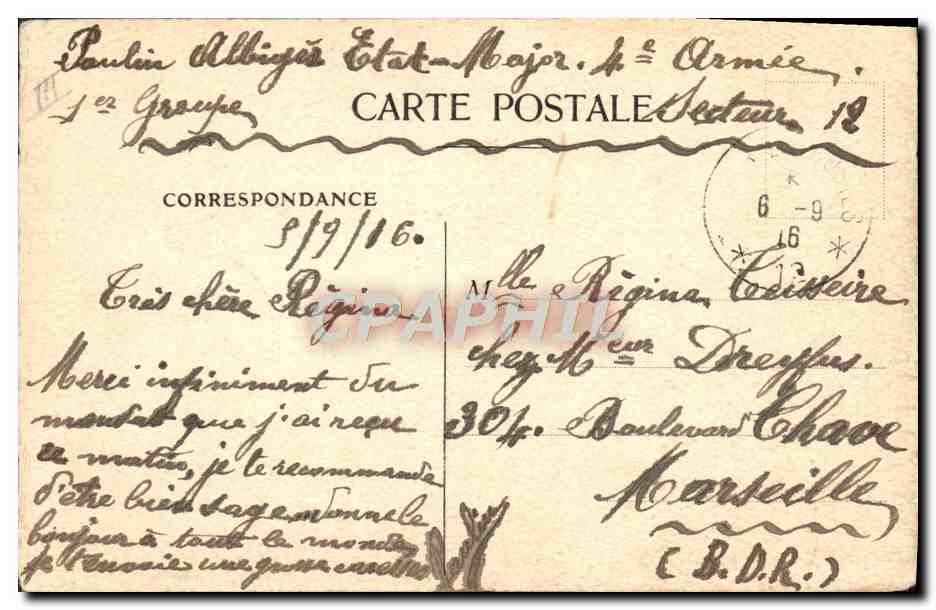 Paulin Albigès Etat-Major. 4e Armée.
1er Groupe
CARTE POSTALE
Secteur 12
CORRESPONDANCE
5/9/16.
6 -9
16
Très chère Régina
Merci infiniment du
mandat que j'ai reçu
ce matin, je te recommande
d'être bien sage, donne le
bonjour à tout le monde
je t'envoie une grosse
Mlle Régina Teisseire
chez Meur Dreyfus.
304. Boulevard Chave
Marseille
(B.D.R.)
CPAPHIL